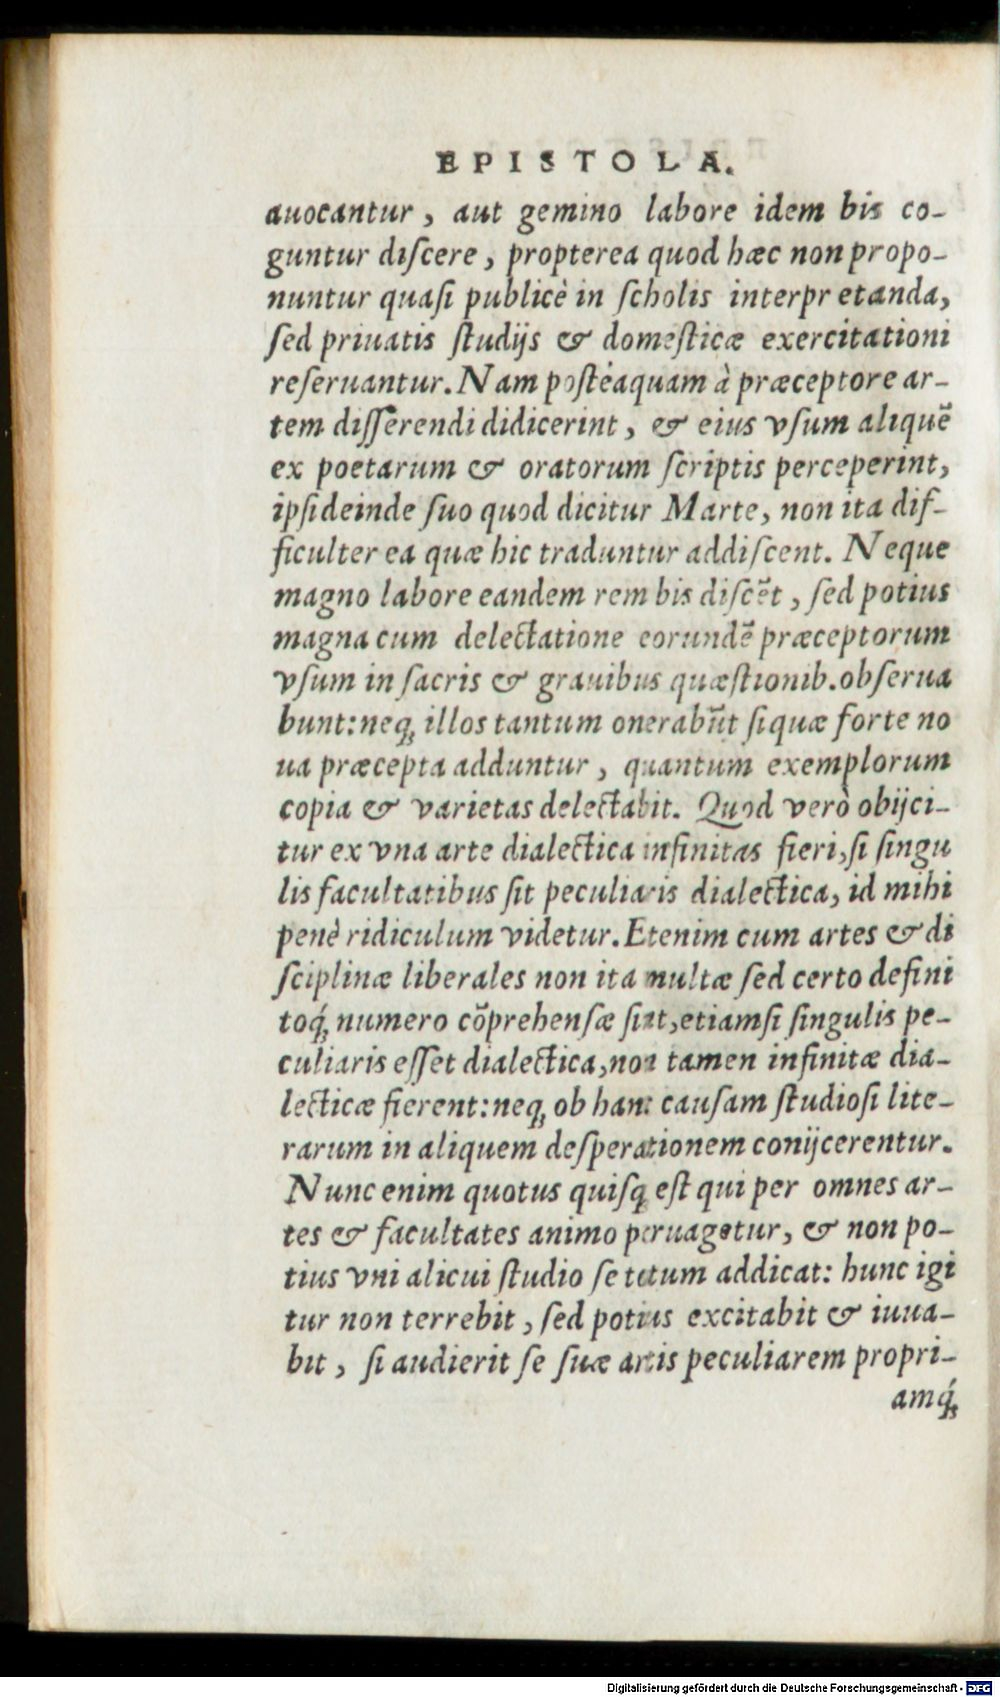 EPISTOLA.
auocantur, aut gemino labore idem bis co-
guntur diſcere, propterea quod hæc non propo-
nuntur quaſi publicè in ſcholis interpretanda,
ſed priuatis ſtudijs & domeſticæ exercitationi
reſeruantur. Nam poſteaquam à præceptore ar-
tem diſſerendi didicerint, & eius vſum aliquē
ex poetarum & oratorum ſcriptis perceperint,
ipſi deinde ſuo quod dicitur Marte, non ita dif-
ficulter ea quæ hic traduntur addiſcent. Neque
magno labore eandem rem bis diſcēt, ſed potius
magna cum delectatione eorundē præceptorum
vſum in ſacris & grauibus quæſtionib. obſerua
bunt: neq; illos tantum onerabūt ſi quæ forte no
ua præcepta adduntur, quantum exemplorum
copia & varietas delectabit. Quod verò obijci-
tur ex vna arte dialectica infinitas fieri, ſi ſingu
lis facultatibus ſit peculiaris dialectica, id mihi
penè ridiculum videtur. Etenim cum artes & di
ſciplinæ liberales non ita multæ ſed certo defini
toq́; numero cōprehenſæ ſint, etiamſi ſingulis pe-
culiaris eſſet dialectica, non tamen infinitæ dia-
lecticæ fierent: neq; ob hanc cauſam ſtudioſi lite-
rarum in aliquem deſperationem conijcerentur.
Nunc enim quotus quiſq; eſt qui per omnes ar-
tes & facultates animo peruagetur, & non po-
tius vni alicui ſtudio ſe totum addicat: hunc igi
tur non terrebit, ſed potius excitabit & iuua-
bit, ſi audierit ſe ſuæ artis peculiarem propri-
amq́;
Digitalisierung gefördert durch die Deutsche Forschungsgemeinschaft - DFG